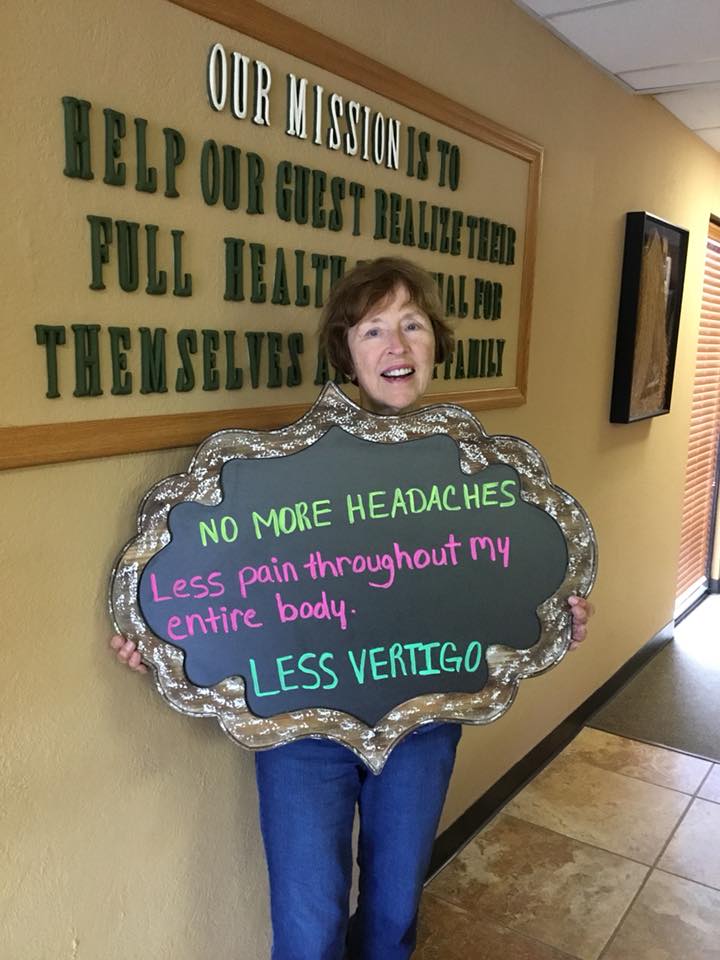 OUR MISSION IS TO
HELP OUR GUEST REALIZE THEIR
FULL HEALTH FOR
THEMSELVES FAMILY
NO MORE HEADACHES
Less pain throughout my
entire body.
LESS VERTIGO